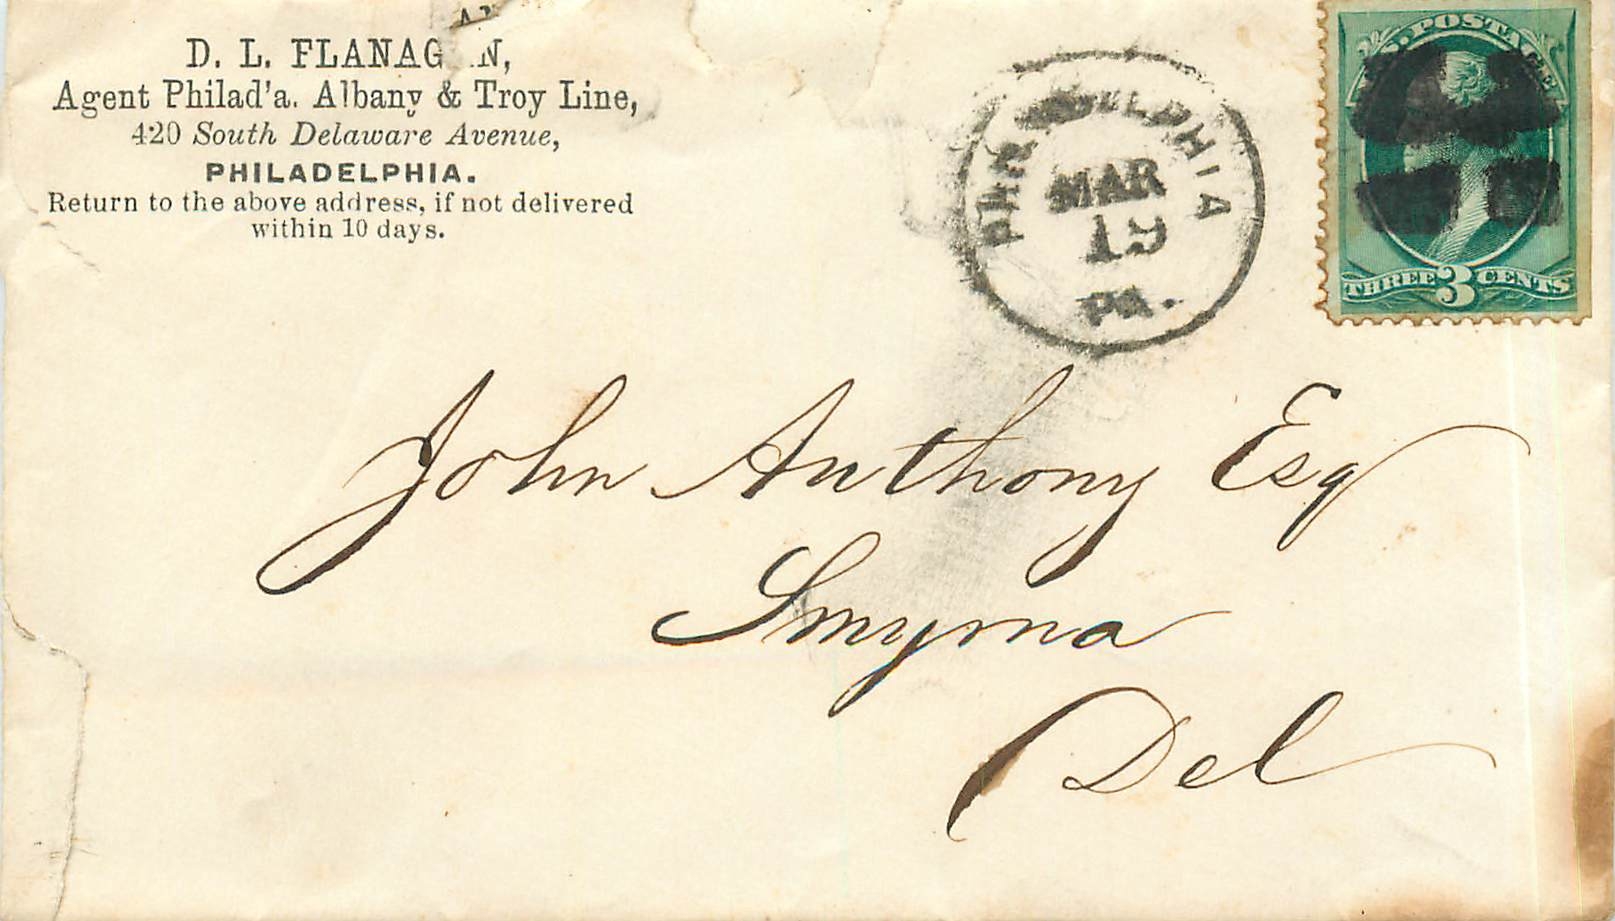 D. L. FLANAGAN,
Agent Philad'a. Albany & Troy Line,
420 South Delaware Avenue,
PHILADELPHIA.
Return to the above address, if not delivered
within 10 days.
PHILADELPHIA
MAR
19
PA.
U.S. POSTAGE
THREE 3 CENTS
John Anthony Esq
Smyrna
Del